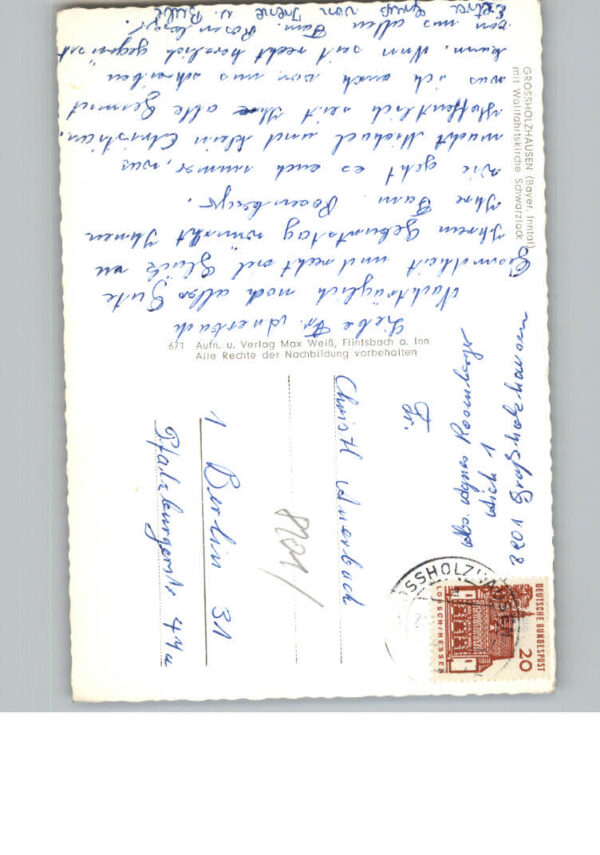 GROSSHOLZHAUSEN (Bayer. Inntal)
mit Wallfahrtskirche Schwarzlack
Liebe Fr. Auerbach
Nachträglich noch alles Gute
Gesundheit und recht viel Glück zu
Ihrem Geburtstag wünscht Ihnen
Ihre Fam. Rosenberger.
Wie geht es euch immer, was
macht Michael und klein Christian.
Hoffentlich seit Ihr alle Gesund
was ich auch von uns schreiben
kann. Nun seit recht herzlich gegrüsst
von uns allen Fam. Rosenberger.
Extra Gruß von Irene u.
671 Aufn. u. Verlag Max Weiß, Flintsbach a. Inn
Alle Rechte der Nachbildung vorbehalten
Abs. Agnes Rosenberger
Aich 1
8201 Großholzhausen
Fr.
Christl Auerbach
8201/
1 Berlin 31
Pfalzburgerstr 44a
GROSSHOLZHAUSEN
DEUTSCHE BUNDESPOST
20
LORSCH/HESSEN